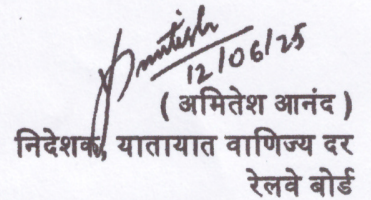 Amitesh
12/06/25
( अमितेश आनंद )
निदेशक, यातायात वाणिज्य दर
रेलवे बोर्ड